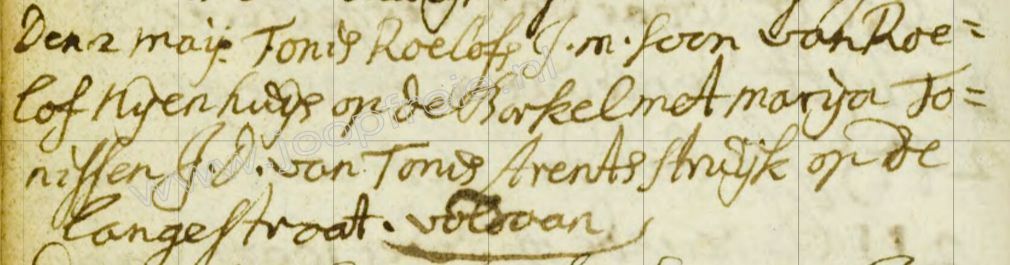 Den 2 maij. Tonis Roelofs J. m. soon van Roe=
lof Nijenhuijs op de Borkel met marija To=
nissen J. D. van Tonis Arents struijk op de
langestraat. voldaan